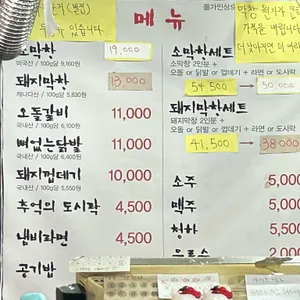 메뉴
물가인상으
소막창 19,000
미국산 / 100g당 9,100원
돼지막창 13,000
캐나다산 / 100g당 5,830원
오돌갈비 11,000
국내산 / 100g당 6,110원
뼈없는닭발 11,000
국내산 / 100g당 6,110원
돼지껍데기 10,000
국내산 / 100g당 5,550원
추억의 도시락 4,500
냄비라면 4,500
공기밥
소막창세트
소막창 2인분 +
오돌 or 닭발 or 껍데기 + 라면 or 도시락
54,500 → 50,000
돼지막창세트
돼지막창 2인분 +
오돌 or 닭발 or 껍데기 + 라면 or 도시락
41,500 → 38,000
소주 5,000
맥주 5,000
청하 5,500
음료수